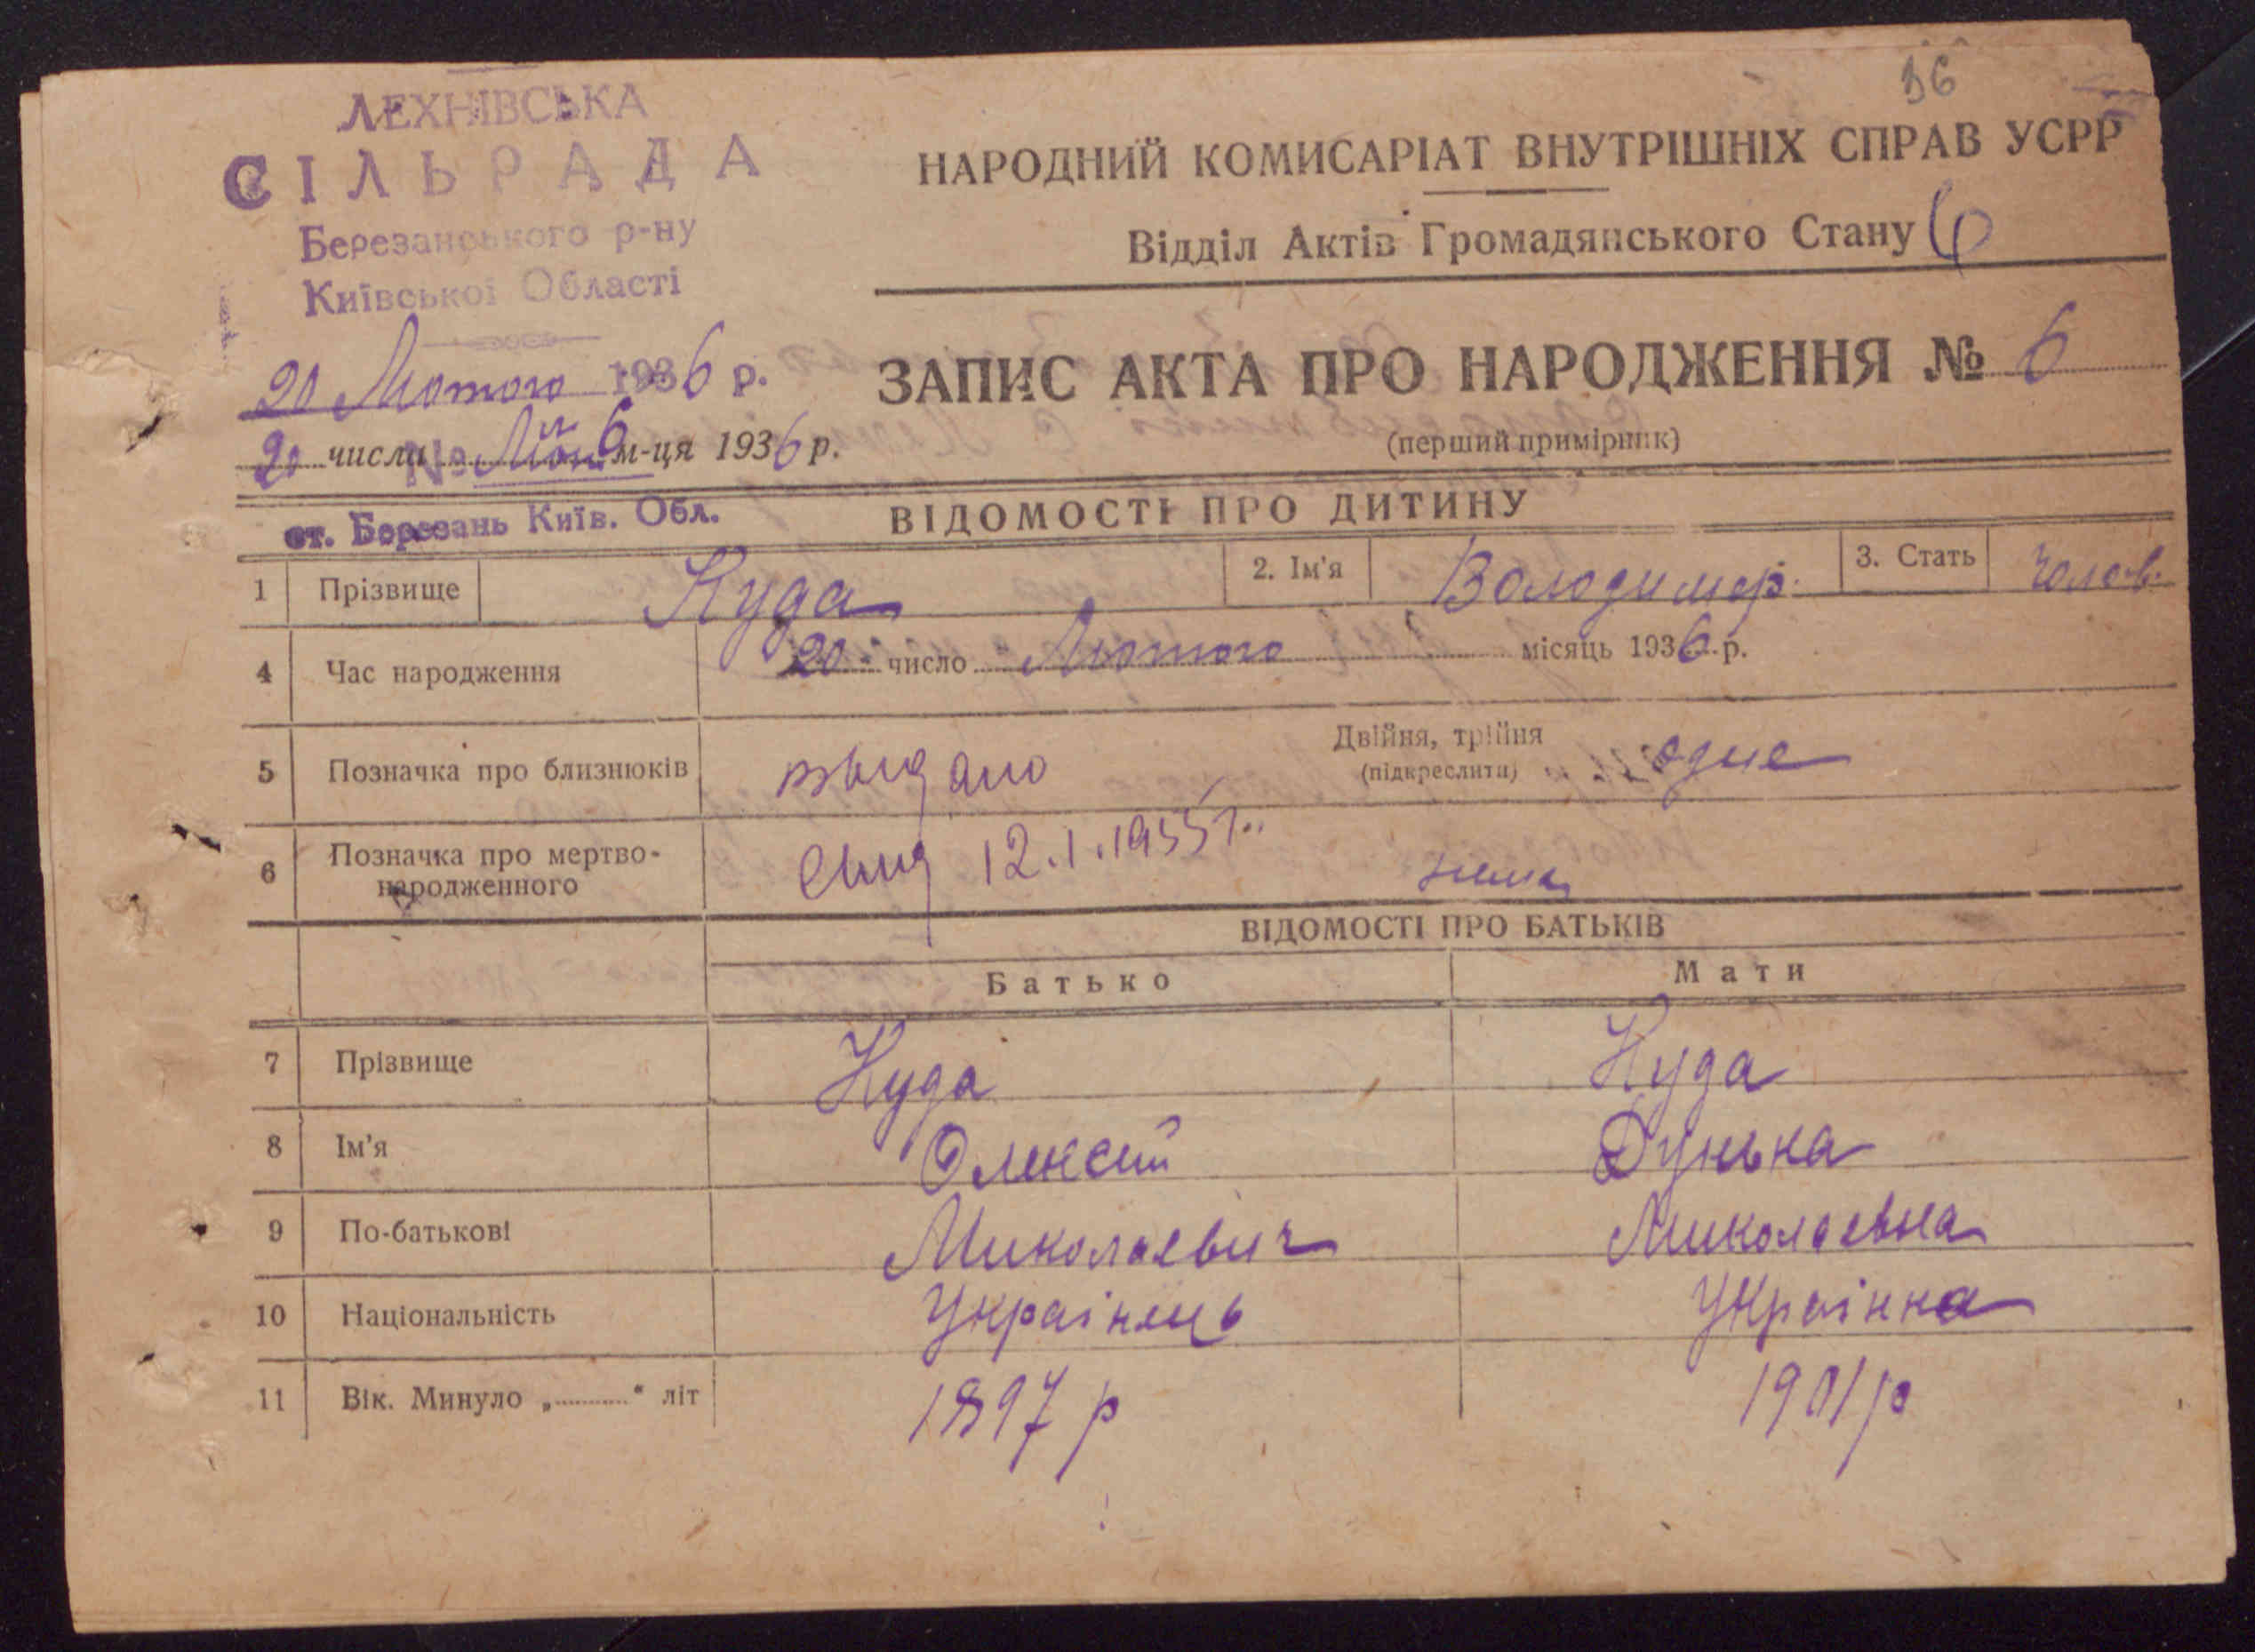 36
ЛЕХНІВСЬКА
СІЛЬРАДА
Березанського р-ну
Київської Області
20 Лютого 1936 р.
№ 6
20 числа м-ця 1936 р.
ст. Березань Київ. Обл.
НАРОДНИЙ КОМИСАРІАТ ВНУТРІШНІХ СПРАВ УСРР
Відділ Актів Громадянського Стану 6
ЗАПИС АКТА ПРО НАРОДЖЕННЯ № 6
(перший примірник)
ВІДОМОСТІ ПРО ДИТИНУ
1 Прізвище Куда 2. Ім'я Володимер. 3. Стать Чолов.
4 Час народження 20 число Лютого місяць 1936 р.
5 Позначка про близнюків Двійня, трійня (підкреслити) одне
6 Позначка про мертво-народженного 12.1.1955 г. нема
ВІДОМОСТІ ПРО БАТЬКІВ
Батько Мати
7 Прізвище Куда Куда
8 Ім'я Олексій Дунька
9 По-батькові Миколаевич Миколаевна
10 Національність Українець Українка
11 Вік. Минуло „ “ літ 1897 р 1901 р